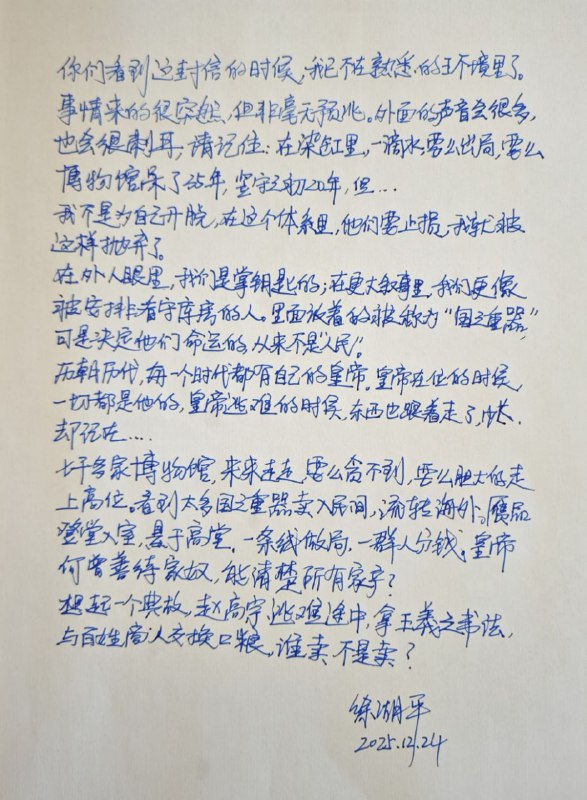 你们看到这封信的时候,我已不在熟悉的环境里了。
事情来的很突然,但非毫无预兆。外面的声音会很多,
也会很刺耳,请记住:在染缸里,一滴水要么出局,要么
博物馆呆了35年,坚守之初20年,但...
我不是为自己开脱,在这个体系里,他们要止损,我就被
这样抛弃了。
在外人眼里,我们是掌钥匙的;在更大叙事里,我们更像
被安排看守库房的人。里面放着的被称为“国之重器”,
可是决定他们命运的,从来不是“人民”。
历朝历代,每一个时代都有自己的皇帝。皇帝在位的时候,
一切都是他的,皇帝逃难的时候,东西也跟着走了,
却记在....
七千多家博物馆,来来走走,要么贪不到,要么胆大的走
上高位。看到太多国之重器卖入民间,流转海外。赝品
登堂入室,悬于高堂。一条线做局,一群人分钱。皇帝
何曾善待家奴,能清楚所有家产?
想起一个典故,赵高宗逃难途中,拿王羲之书法,
与百姓商人交换口粮,谁卖不是卖?
徐湖平
2025.12.24